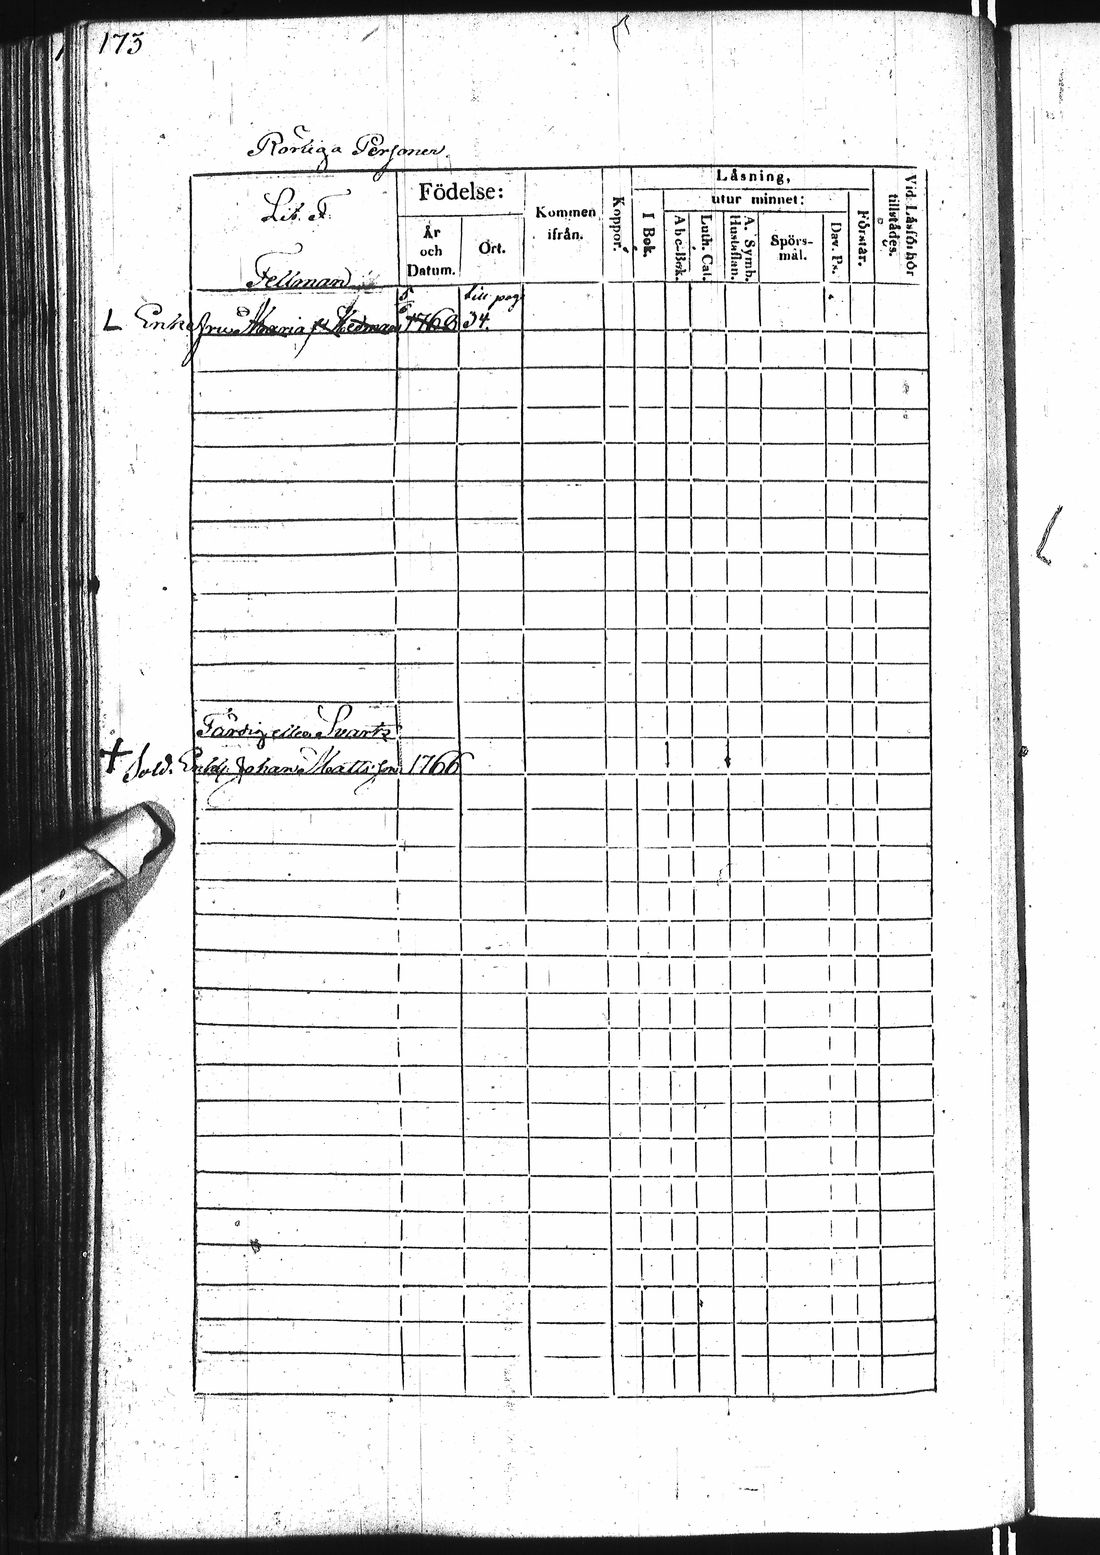 173
Rörliga Personer
Lit. F.
Födelse:
År
och
Datum.
Ort.
Kommen
ifrån.
Koppor.
Läsning,
I Bok.
utur minnet:
Abc-Bok.
Luth. Cat.
A. Symb.
Hustaflan.
Spörs-
mål.
Dav. Ps.
Förstår.
Vid Läsförhör
tillstädes.
Fellman
L Enkefru Maria Hedman 1768 till pag
34.
Färdig eller Svart
† Sold. Enkl. Johan Mattsson 1766